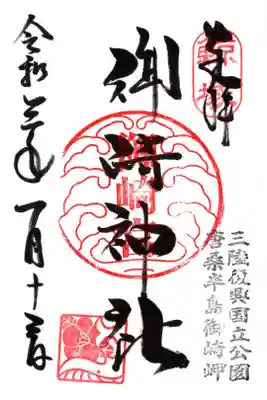 奉拝
三陸復興国立公園
唐桑半島御崎岬
御崎神社
令和三年一月十三日